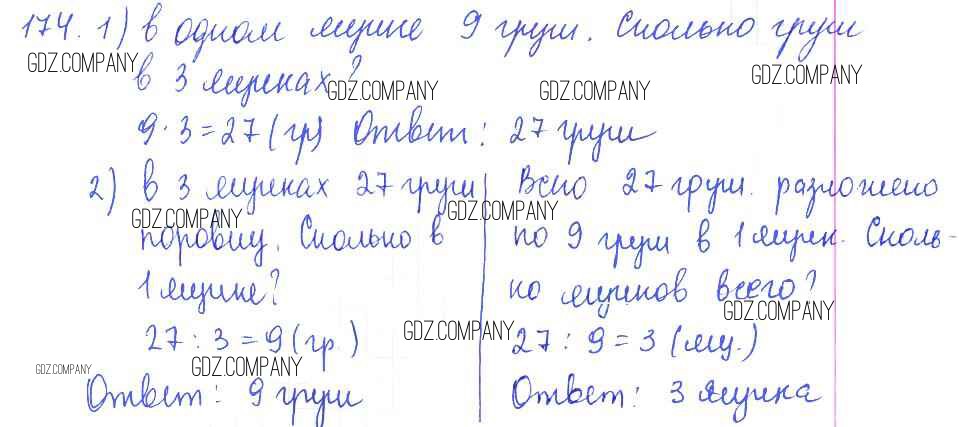 174. 1) в одном ящике 9 груш. Сколько груш
GDZ.COMPANY
в 3 ящиках?
GDZ.COMPANY GDZ.COMPANY GDZ.COMPANY
9 · 3 = 27 (гр) Ответ: 27 груш
2) в 3 ящиках 27 груш
GDZ.COMPANY
поровну. Сколько в
1 ящике?
27 : 3 = 9 (гр.)
GDZ.COMPANY
GDZ.COMPANY
Ответ: 9 груш
Всего 27 груш. разложено
GDZ.COMPANY
по 9 груш в 1 ящик. Сколь-
ко ящиков всего?
GDZ.COMPANY
GDZ.COMPANY
27 : 9 = 3 (ящ.)
Ответ: 3 ящика